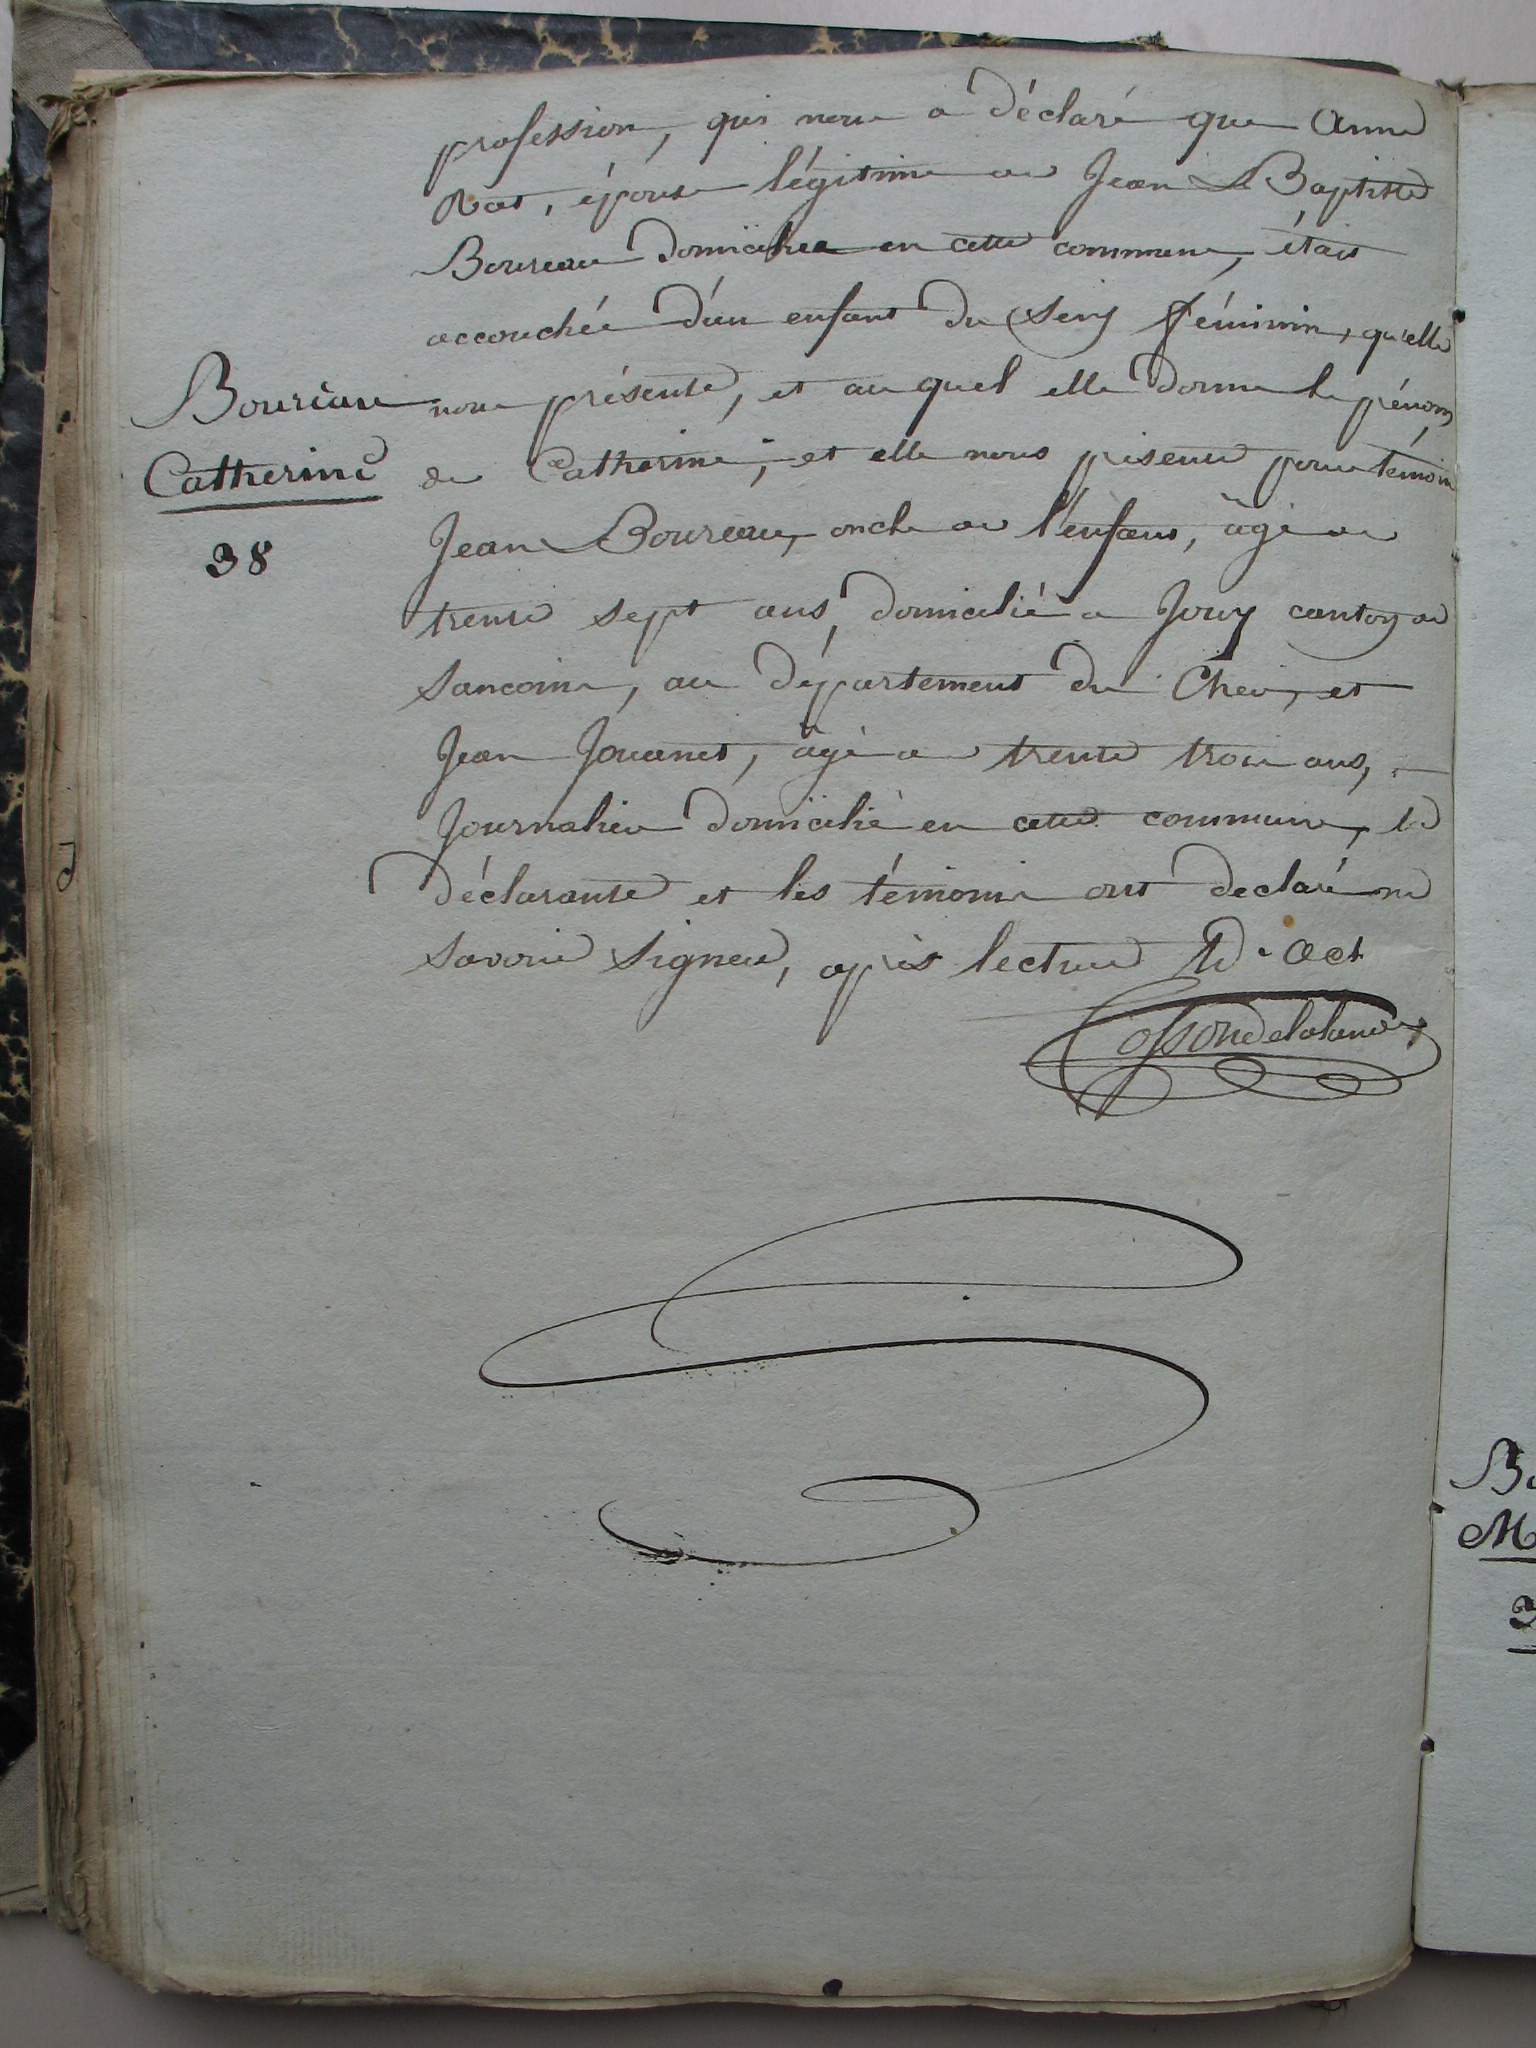 profession, qui nous a déclaré que Anne
Rat, épouse légitime de Jean Baptiste
Boureau domiciliée en cette commune, était
accouchée d'un enfant du sexe féminin, qu'elle
Boureau
nous présente, et auquel elle donne le prénom
Catherine
de Catherine; et elle nous présente pour témoin
38
Jean Boureau, oncle de l'enfant, âgé de
trente sept ans, domicilié a Jouy canton de
Sancoins, au département du Cher, et
Jean Jouanet, âgé de trente trois ans,
Journalier domicilié en cette commune, la
déclarante et les témoins ont declaré ne
savoir signer, après lecture d'Act
Cossondelalande
Bo
M
3